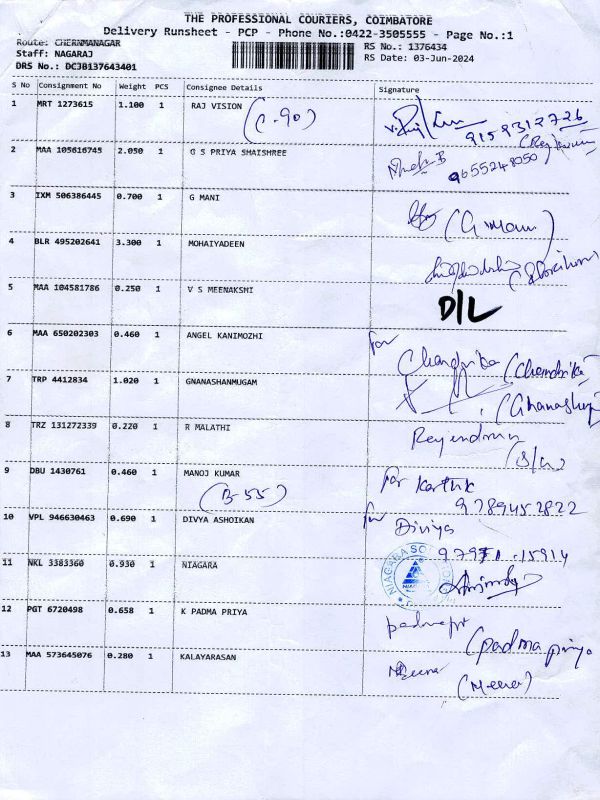 THE PROFESSIONAL COURIERS, COIMBATORE
Delivery Runsheet - PCP - Phone No.:0422-3505555 - Page No.:1
Route: CHERNMANAGAR
RS No.: 1376434
Staff: NAGARAJ
RS Date: 03-Jun-2024
DRS No.: DCJB137643401
S No Consignment No Weight PCS Consignee Details Signature
1 MRT 1273615 1.100 1 RAJ VISION
(C-90)
9159312726
2 MAA 105616745 2.050 1 G S PRIYA SHAISHREE
9655248050
3 IXM 506386445 0.700 1 G MANI
(G Mani)
4 BLR 495202641 3.300 1 MOHAIYADEEN
5 MAA 104581786 0.250 1 V S MEENAKSHI
D/L
6 MAA 650202303 0.460 1 ANGEL KANIMOZHI
for Chandrika (Chandrika)
7 TRP 4412834 1.020 1 GNANASHANMUGAM
8 TRZ 131272339 0.220 1 R MALATHI
Rajendran
9 DBU 1430761 0.460 1 MANOJ KUMAR
(B-55)
for Karthik
9789452822
10 VPL 946630463 0.690 1 DIVYA ASHOIKAN
for Diviya
97971-15914
11 NKL 3383360 0.930 1 NIAGARA
NIAGARA
12 PGT 6720498 0.658 1 K PADMA PRIYA
(padma priya
13 MAA 573645076 0.280 1 KALAYARASAN
Meena
(Meena)